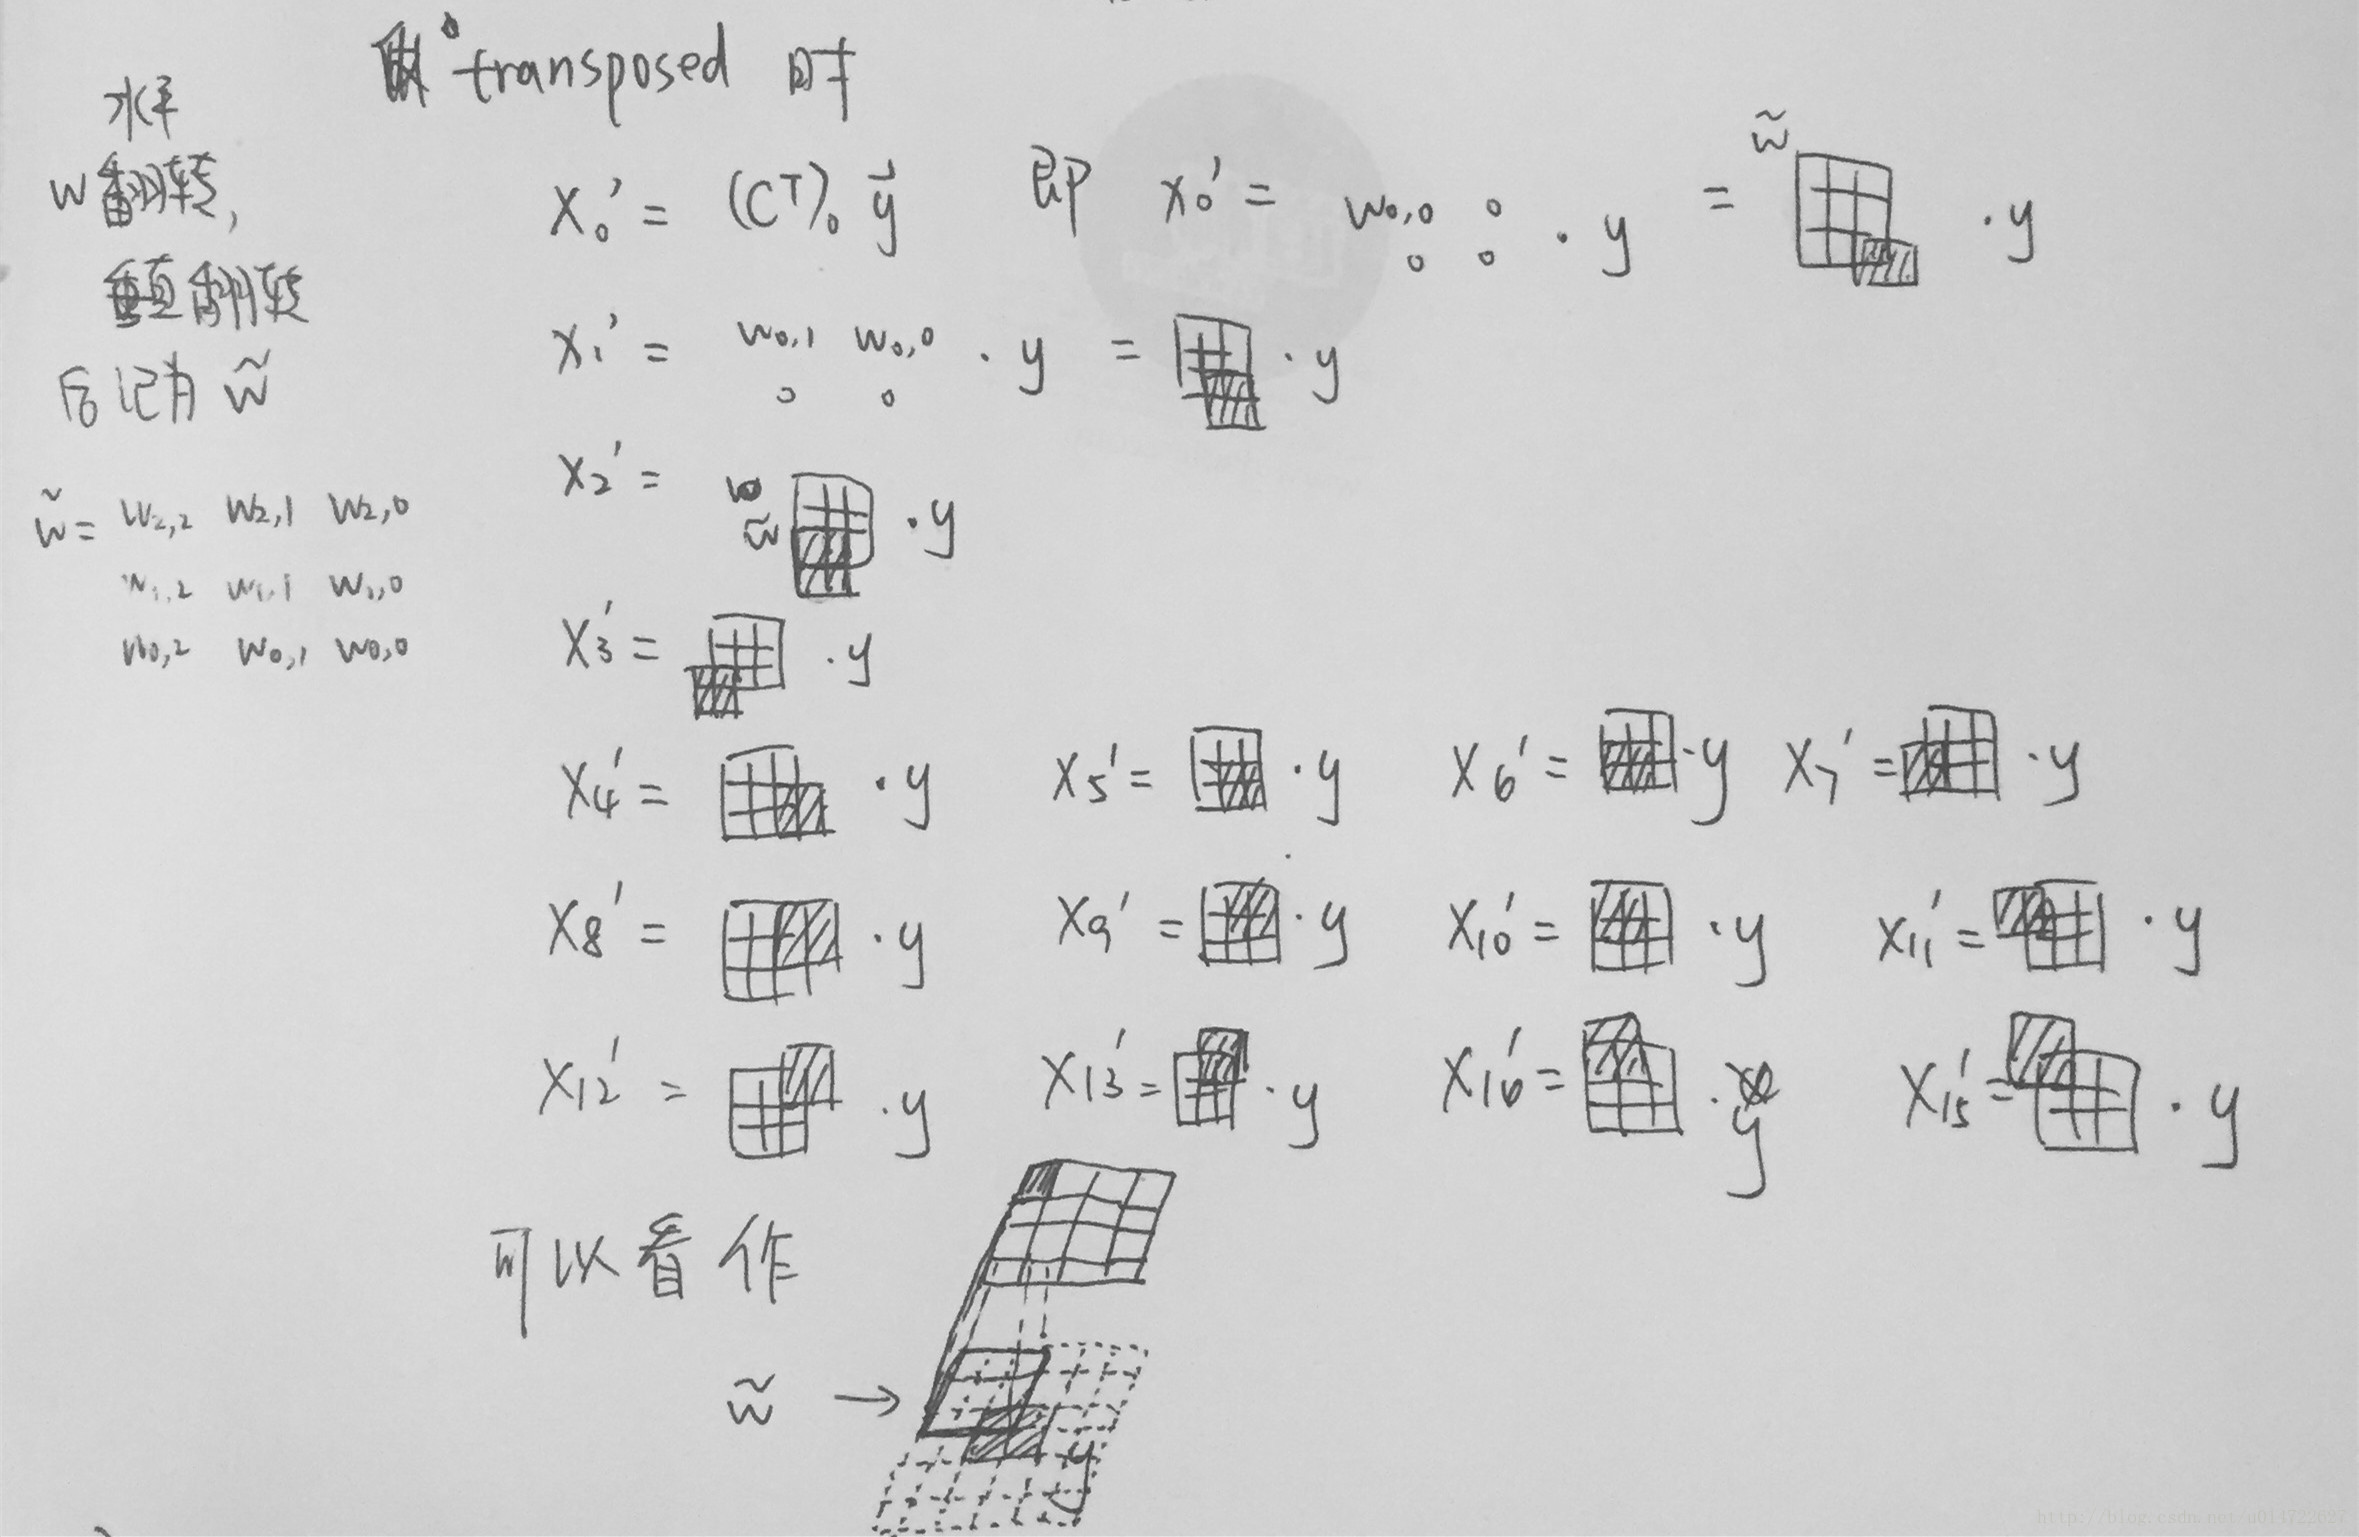 transposed 时
水平
w 翻转,
垂直翻转
后记为 w̃
w̃ = w2,2 w2,1 w2,0
w1,2 w1,1 w1,0
w0,2 w0,1 w0,0
x0' = (C^T)0 y⃗ 即 x0' = w0,0 0 · y = w̃ · y
0 0
x1' = w0,1 w0,0 · y = · y
0 0
x2' = w̃ · y
x3' = · y
x4' = · y x5' = · y x6' = · y x7' = · y
x8' = · y x9' = · y x10' = · y x11' = · y
x12' = · y x13' = · y x16' = · y x15' = · y
可以看作
w̃ →
y
http://blog.csdn.net/u014722627